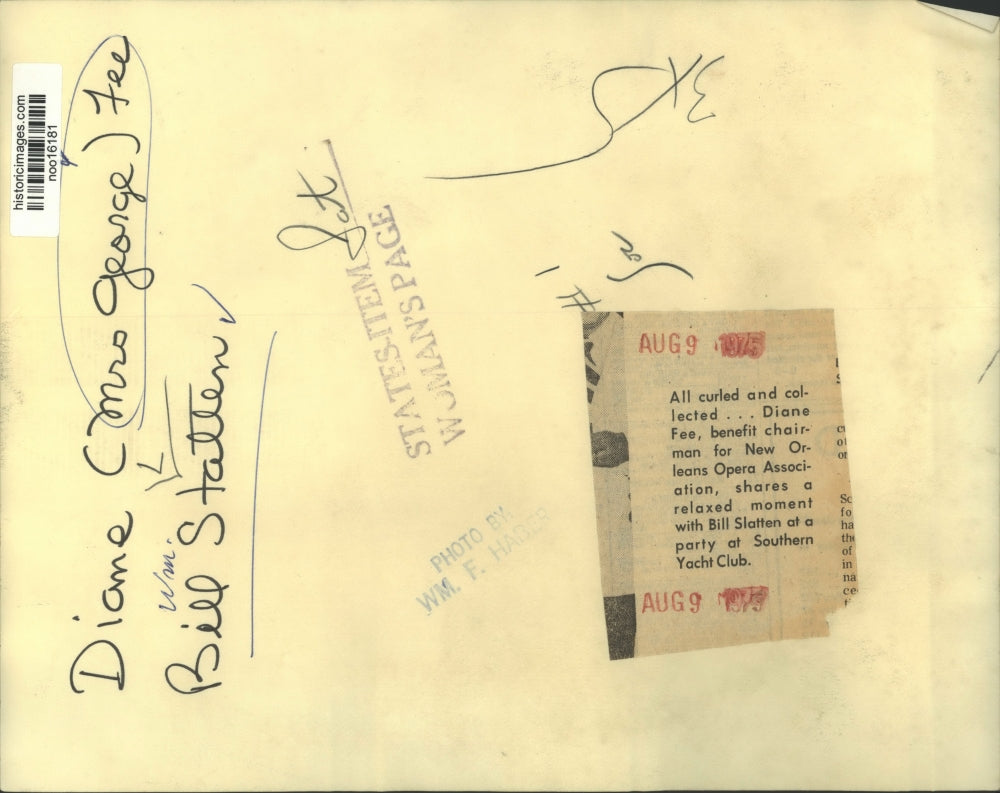 historicimages.com
noo16181
Diane (Mrs George) Fee
or
Wm.
Bill Slatten
Sat
STATES-ITEM
WOMAN'S PAGE
PHOTO BY
WM. F. HABER
3
# 1
AUG 9 1975
All curled and col-
lected . . . Diane
Fee, benefit chair-
man for New Or-
leans Opera Associ-
ation, shares a
relaxed moment
with Bill Slatten at a
party at Southern
Yacht Club.
AUG 9 1975